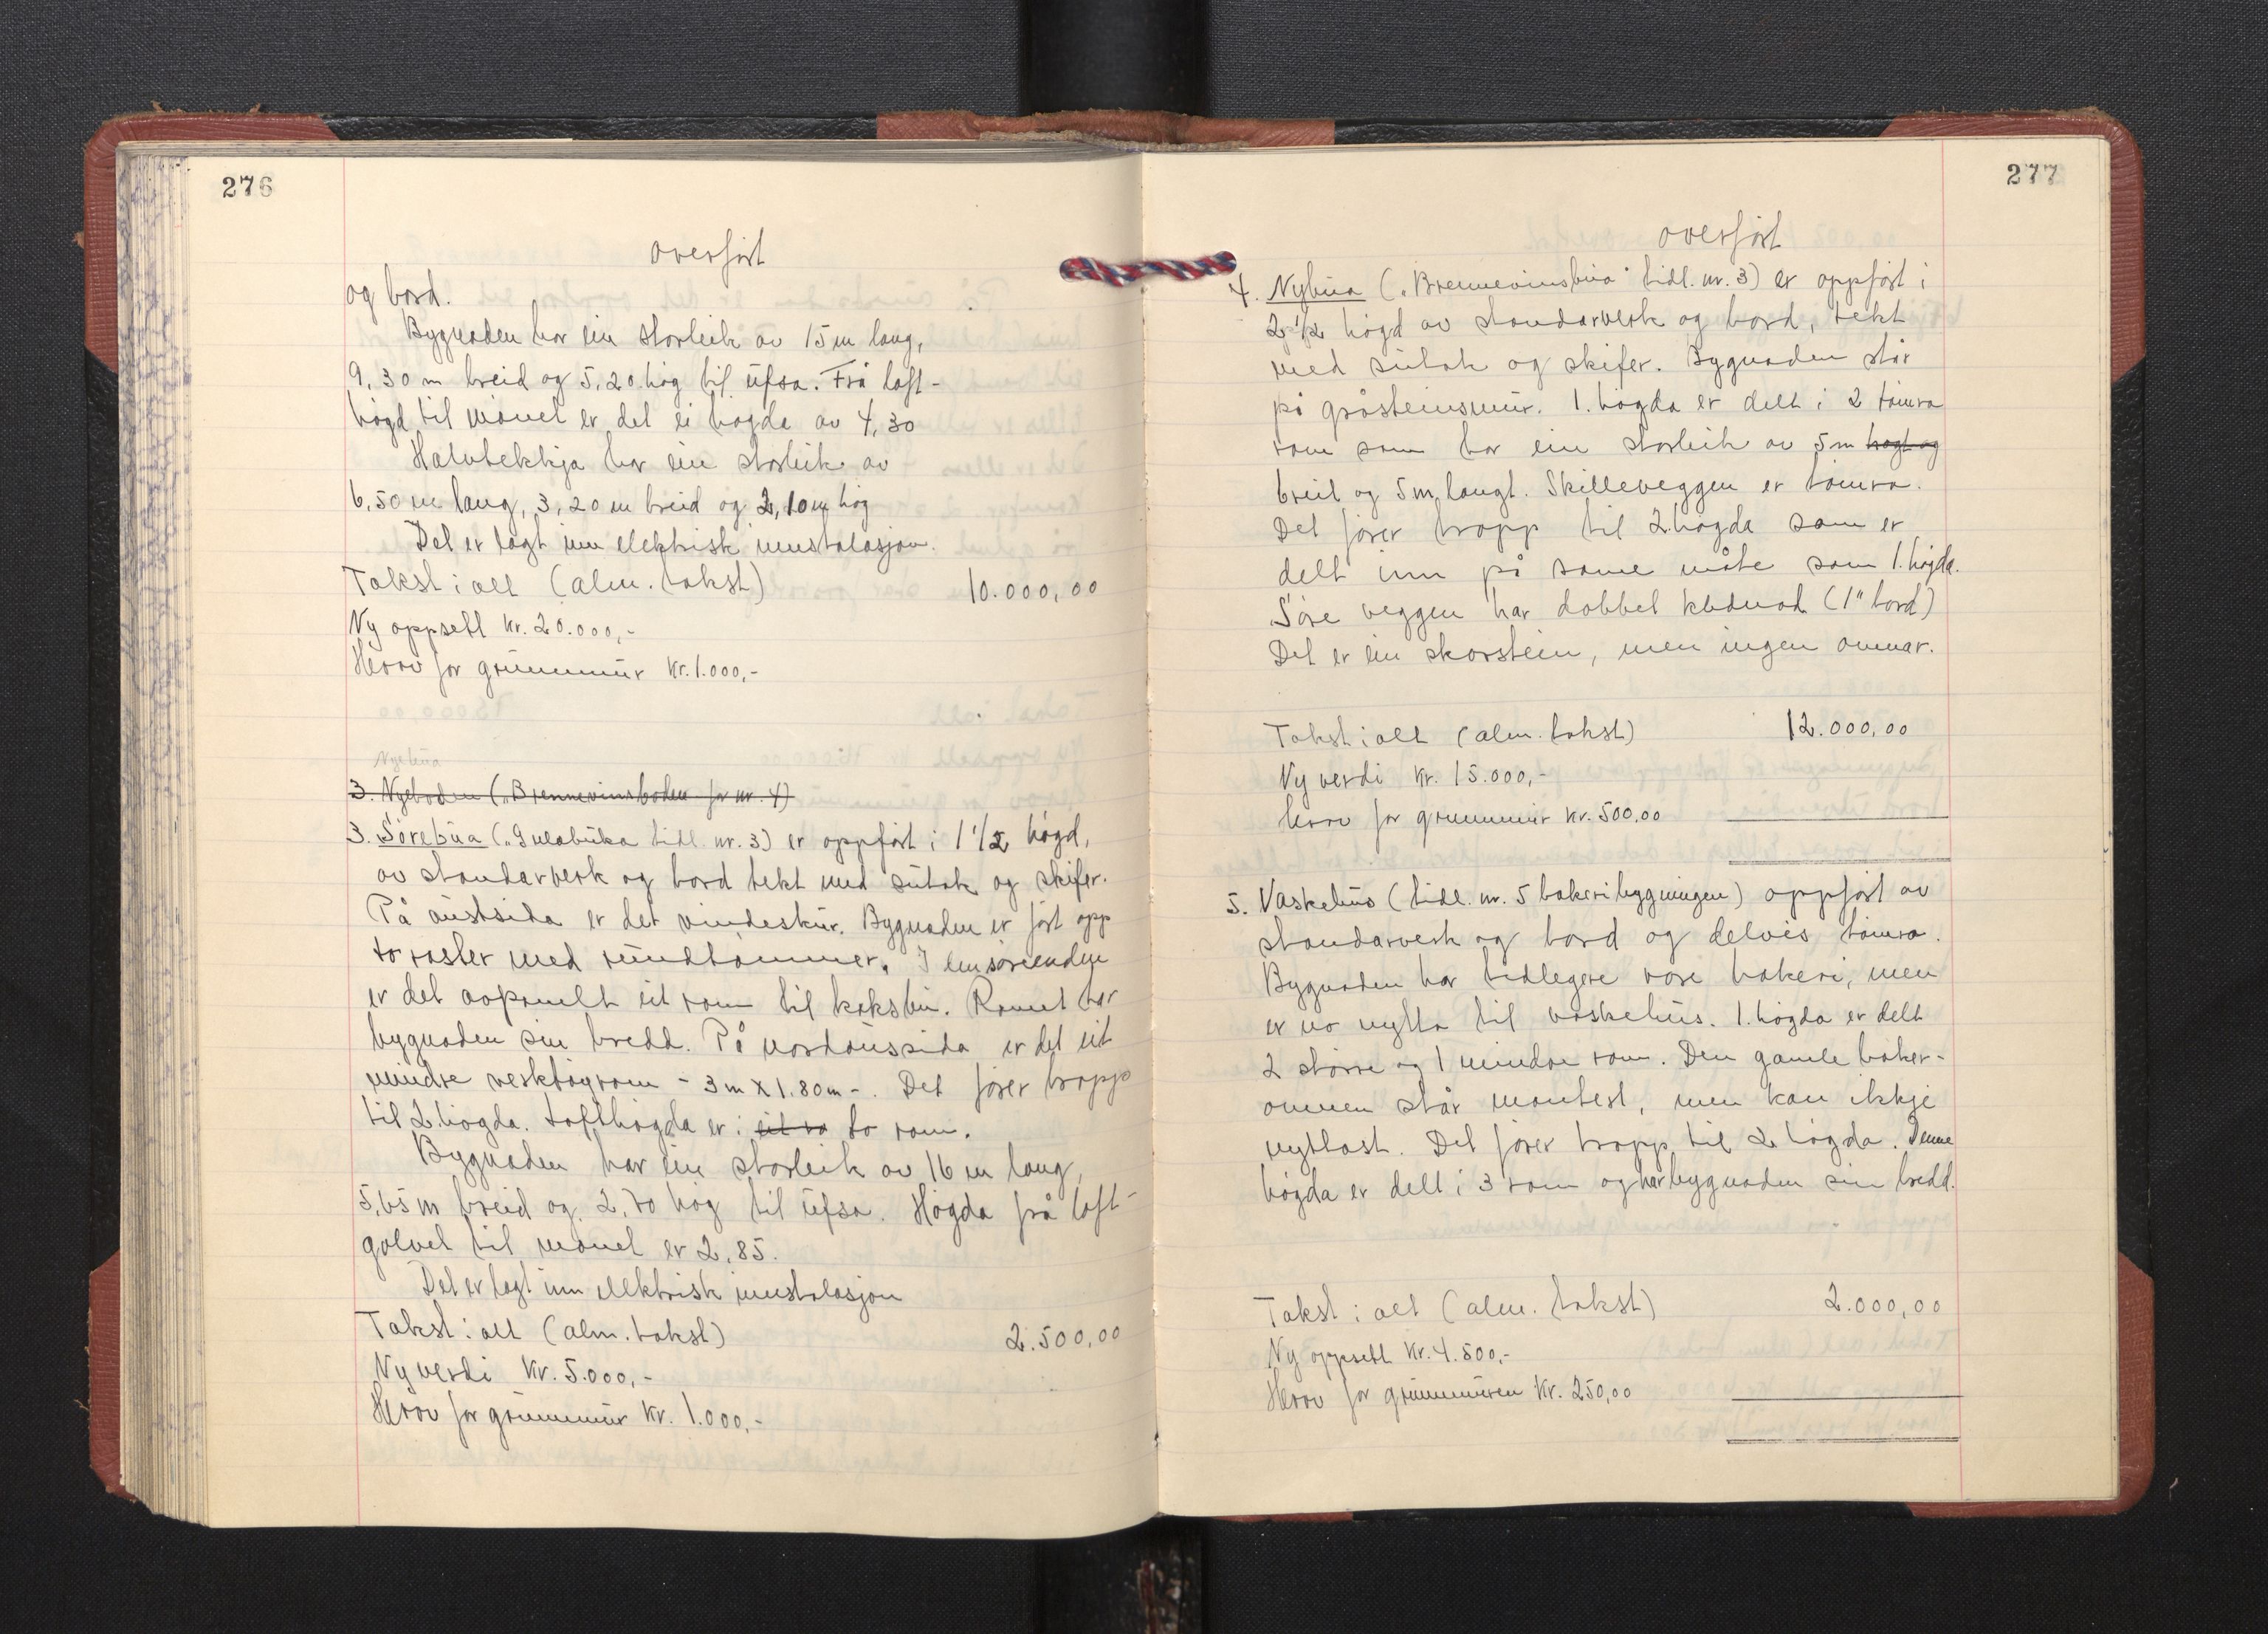 276
overført
og bord.
Bygnaden har ein storleik av 15 m lang,
9,30 m breid og 5,20 høg til ufsa. Frå loft-
høgd til mønet er det ei høgda av 4,30
Halvtekkja har ein storleik av
6,50 m lang, 3,20 m breid og 2,10 m høg
Det er lagt inn elektrisk innstalasjon.
Takst i alt (alm. takst) 10.000,00
Ny oppsett kr. 20.000,-
Herav for grunnmur kr. 1.000,-
Nyebua
3. Nyeboden („Brennevinsboden for nr. 4)
3. Sørebua („Gulabuka tidl. nr. 3) er oppført i 1 1/2 høgd,
av standarverk og bord tekt med sutak og skifer.
På austsida er det vindeskur. Bygnaden er ført opp
to røster med rundtømmer. I ein søreenden
er det avpanelt eit rom til koksbu. Romet har
bygnaden sin bredd. På nordaussida er det eit
mindre verktøyrom - 3 m x 1.80 m -. Det fører tropp
til 2 høgda. Lofthøgda er i eit ro to rom.
Bygnaden har ein storleik av 16 m lang,
5,65 m breid og 2,70 høg til ufsa. Høgda frå loft-
golvet til mønet er 2,85.
Det er lagt inn elektrisk innstalasjon
Takst i alt (alm. takst) 2.500,00
Ny verdi kr. 5.000,-
Herav for grunnmur kr. 1.000,-
277
overført
4. Nybua („Brennevinsbua" tidl. nr. 3) er oppført i
2 1/2 høgd av standarverk og bord, tekt
med sutak og skifer. Bygnaden står
på gråsteinsmur. 1. høgda er delt i 2 tømra
rom som har ein storleik av 5 m høgt og
breit og 5 m langt. Skilleveggen er tømra.
Det fører tropp til 2 høgda som er
delt inn på same måte som 1. høgda.
Søre veggen har dobbel klednad (1" bord)
Det er ein skorstein, men ingen omnar.
Takst i alt (alm. takst) 12.000,00
Ny verdi kr. 15.000,-
herav for grunnmur kr. 500,00
5. Vaskehus (tidl. nr. 5 bakeribygningen) oppført av
standarverk og bord og delvis tømra.
Bygnaden har tidlegere vore bakeri, men
er no nytta til vaskehus. 1. høgda er delt
2 større og 1 mindre rom. Den gamle baker-
omnen står montert, men kan ikkje
nyttast. Det fører tropp til 2 høgda. Denne
høgda er delt i 3 rom og har bygnaden sin bredd.
Takst i alt (alm. takst) 2.000,00
Ny oppsett kr. 4.500,-
Herav for grunnmuren kr. 250,00